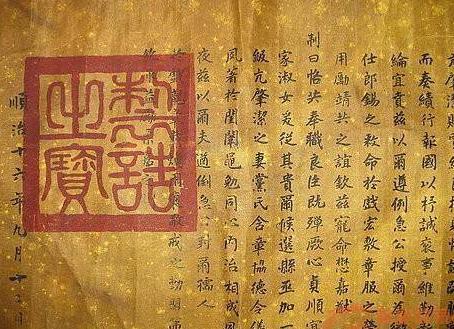 肇潔
而奏績行報國以抒誠褒事維勤
綸宜賁茲以爾遵例急公授爾為
仕郎錫之敕命於戲宏敷章服之
用勵靖共之誼欽茲寵命懋嘉猷
制曰恪共奉職良臣既殫厥心貞順宜
家淑女爰從其貴爾候選縣丞加一
級亢肇潔之妻黨氏含章協德令儀
風著於閨闈黽勉同心內治相成
夜茲以爾夫遵例急公封爾孺人
於敬戒之勖
欽
制誥之寶
順治十六年九月十二